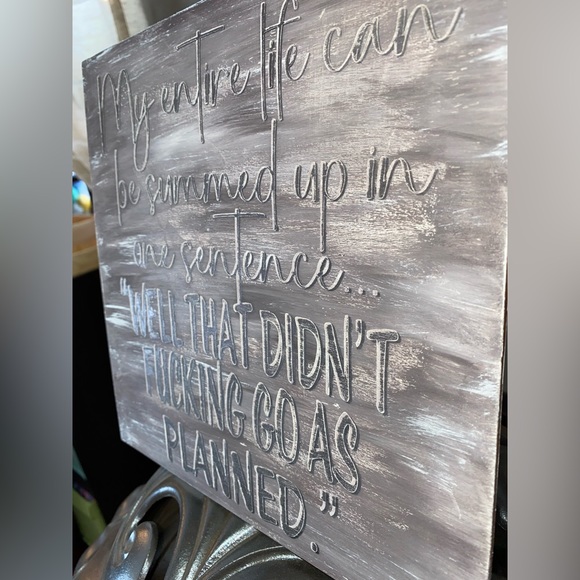 My entire life can
be summed up in
one sentence...
"WELL THAT DIDN'T
FUCKING GO AS
PLANNED."